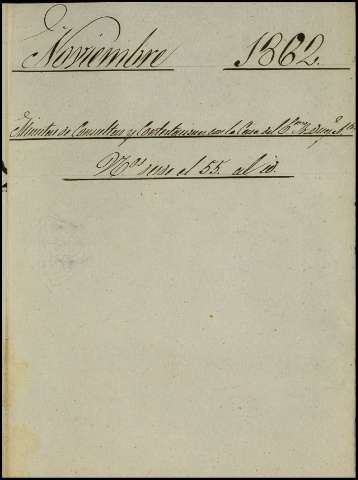 Noviembre 1862.
Minutas de Consultas y Contestaciones con la Casa del
Nos. desde el 55. al id.